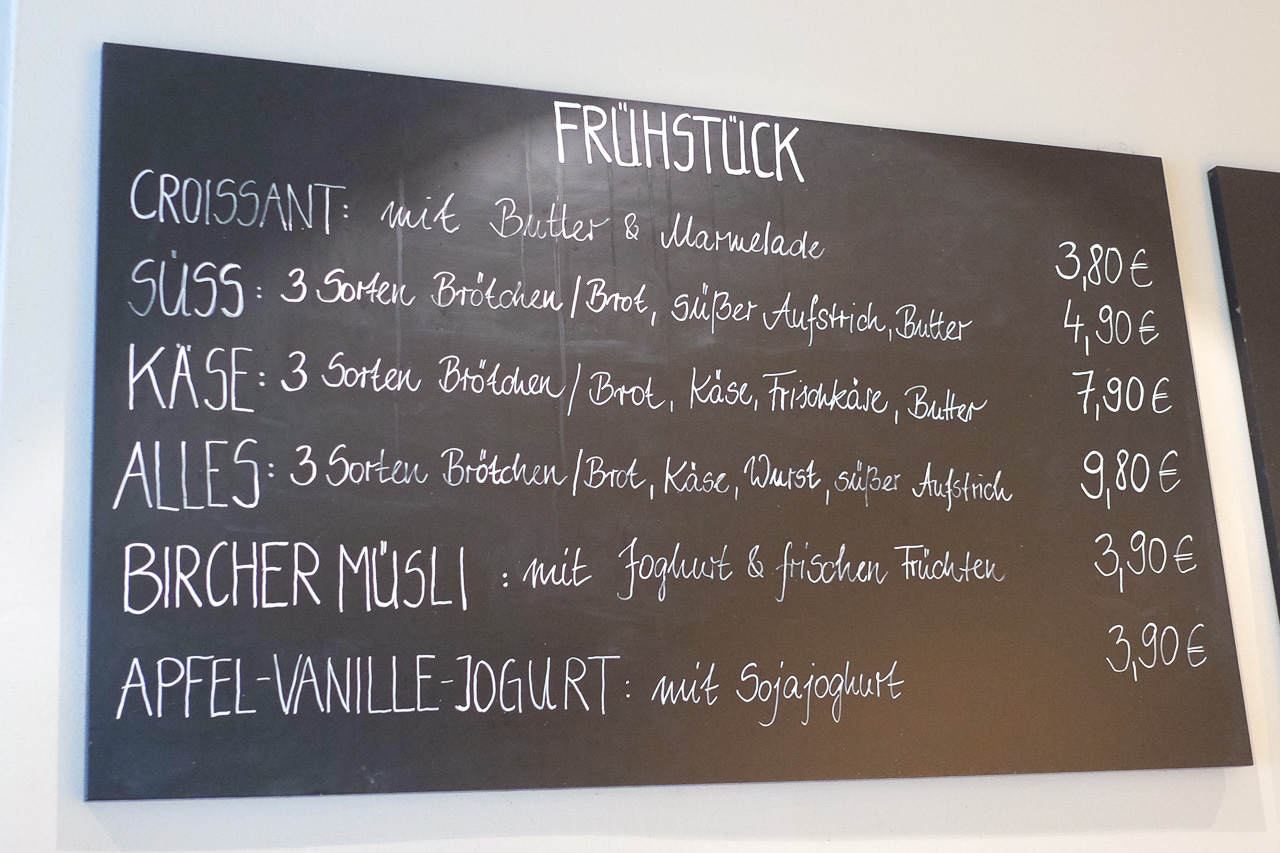 FRÜHSTÜCK
CROISSANT: mit Butter & Marmelade 3,80 €
SÜSS: 3 Sorten Brötchen/Brot, süßer Aufstrich, Butter 4,90 €
KÄSE: 3 Sorten Brötchen/Brot, Käse, Frischkäse, Butter 7,90 €
ALLES: 3 Sorten Brötchen/Brot, Käse, Wurst, süßer Aufstrich 9,80 €
BIRCHER MÜSLI : mit Joghurt & frischen Früchten 3,90 €
APFEL-VANILLE-JOGURT: mit Sojajoghurt 3,90 €